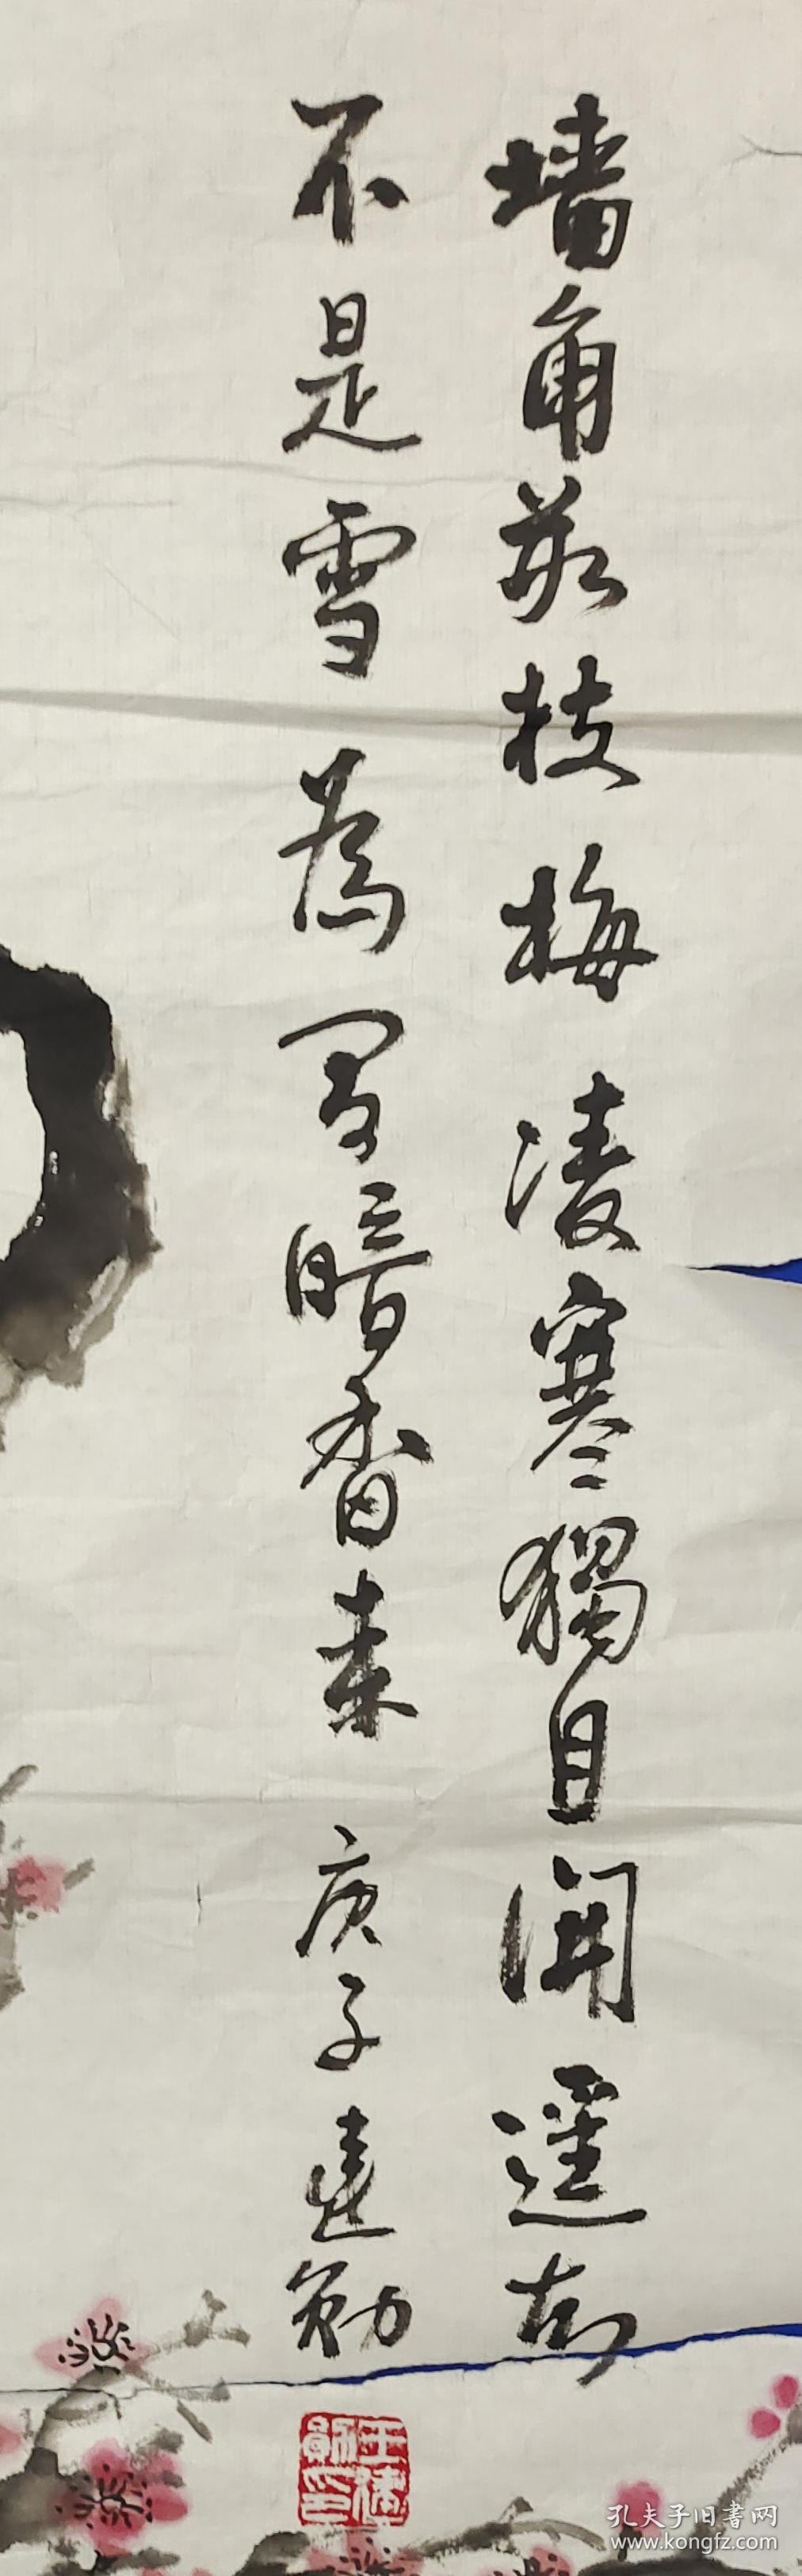 墙角数枝梅凌寒獨自開遥知
不是雪為有暗香来 庚子 勋
孔夫子旧書网
www.kongfz.com